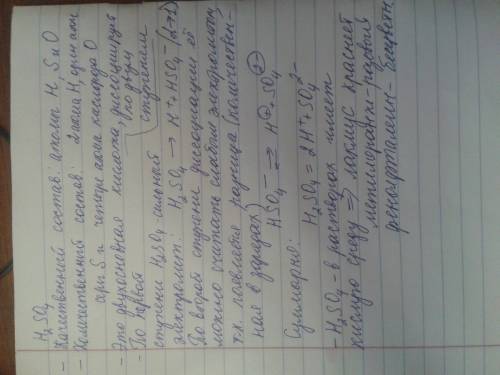 H₂SO₄
- Качественный состав: атомы H, S и O
- Количественный состав: 2 атома H, один атом
серы S и четыре атома кислорода O
- Это двухосновная кислота, диссоциирует
по двум
ступеням
- По первой
ступени H₂SO₄ - сильный
электролит: H₂SO₄ → H⁺ + HSO₄⁻ (α→1)
По второй ступени диссоциации её
можно считать слабым электролитом,
т.к. появляется разница (количествен-
ная в зарядах)
HSO₄⁻ ⇄ H⁺ + SO₄²⁻
Суммарно: H₂SO₄ = 2H⁺ + SO₄²⁻
- H₂SO₄ - в растворах имеет
кислую среду ⇒ лакмус краснеет
метилоранж - розовый
фенолфталеин - бесцветн